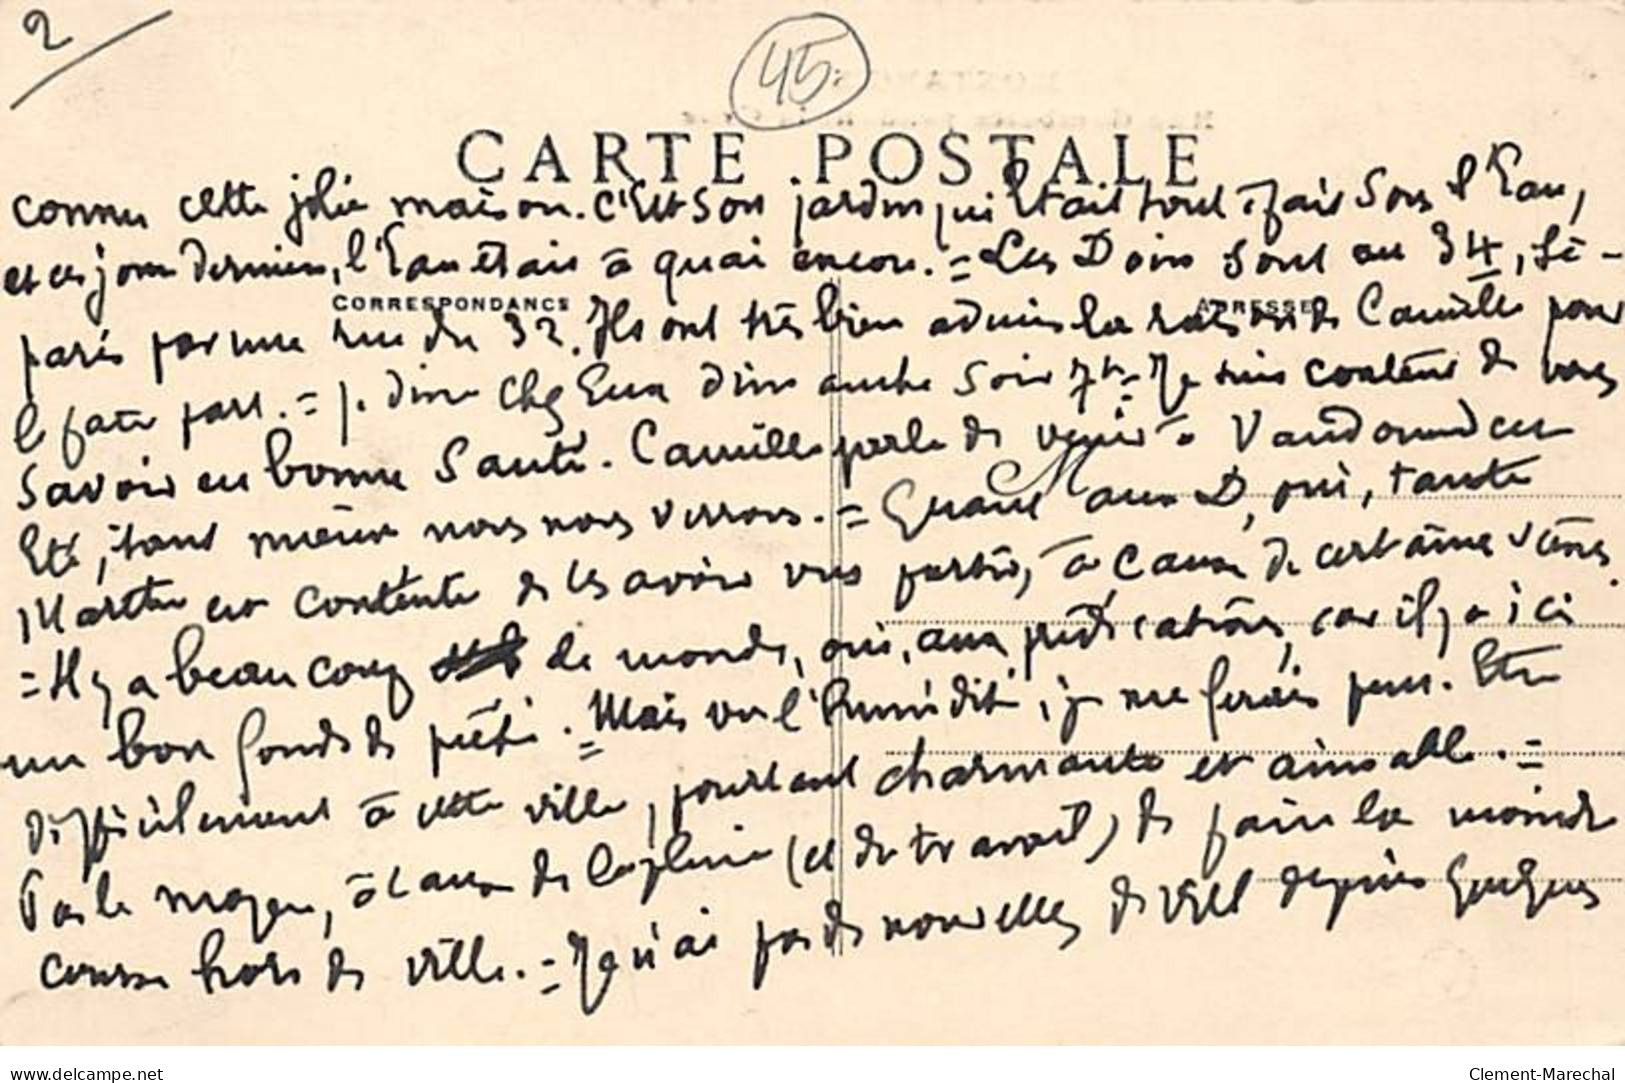 2
45
CARTE POSTALE
connu cette jolie maison. c'Est son jardin qui Etait tout à fait sous l'Eau,
et ces jours derniers, l'Eau était à quai encore. = Les D sont au 34, sé-
CORRESPONDANCE
ADRESSE
parés par une rue du 32. Ils ont très bien admis la raison de Camille pour
le faire part. = je dîne chez Eux dimanche soir 7h = Je suis content de vous
savoir en bonne santé. Camille parle de venir à en
Eté, tant mieux nous nous verrons. = Quant aux D, oui, tante
Marthe est contente de les avoir vus partir, à cause de certaines
= Il y a beaucoup de monde, oui, aux prédications, car il y a ici
un bon fonds de piété. = Mais vu l'humidité, je me ferais peu. Etre
difficilement à cette ville, pourtant charmante et aimable. =
Pas le moyen, à cause de la pluie (et du travail) de faire la moindre
course hors de ville. = Je n'ai pas de nouvelles de depuis quelques
www.delcampe.net
Clement-Marechal